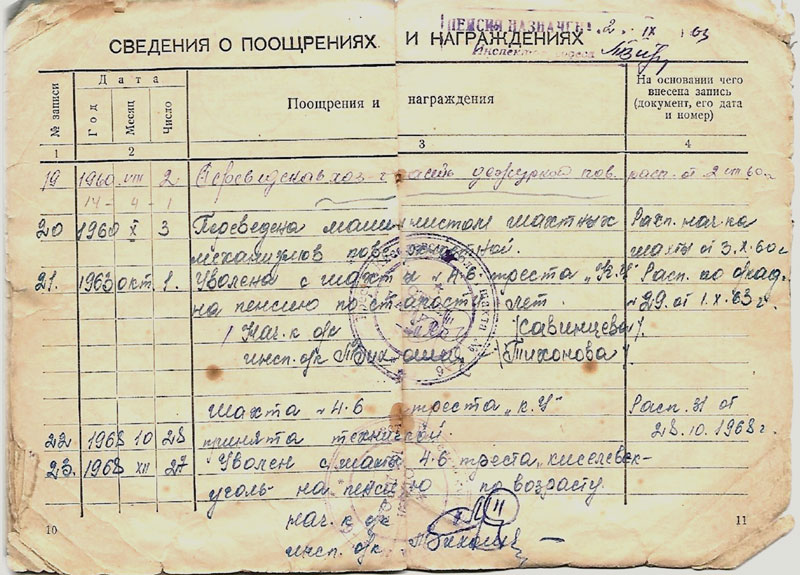 ПЕНСИЯ НАЗНАЧЕНА 2 IX 63
СВЕДЕНИЯ О ПООЩРЕНИЯХ И НАГРАЖДЕНИЯХ
Инспектор
№ записи
Дата
Год
Месяц
Число
Поощрения и награждения
На основании чего внесена запись (документ, его дата и номер)
1 2 3 4
19 1960 VIII 2 дежурной пов. расп. от 2 VIII 60г
14 - 4 - 1
20 1960 X 3 машинистом шахтных Расп. нач-ка
механизмов шахты от 3.X.60г
21. 1963 окт. 1. Уволена с шахты № 4-6 треста "К.У" Расп. по
на пенсию по старости лет. №29. от 1.X.63г.
Нач. к о/к /Савинцева/.
инсп. о/к /Тихонова/.
шахта № 4-6 треста "К.У" Расп. 31 от
22. 1968 10 28 принята технической. 28.10.1968г.
23. 1968 XII 27 Уволен с шахты 4-6 треста "Киселевск-
уголь" на пенсию по возрасту.
нач. к о/к
инсп. о/к.
10
11